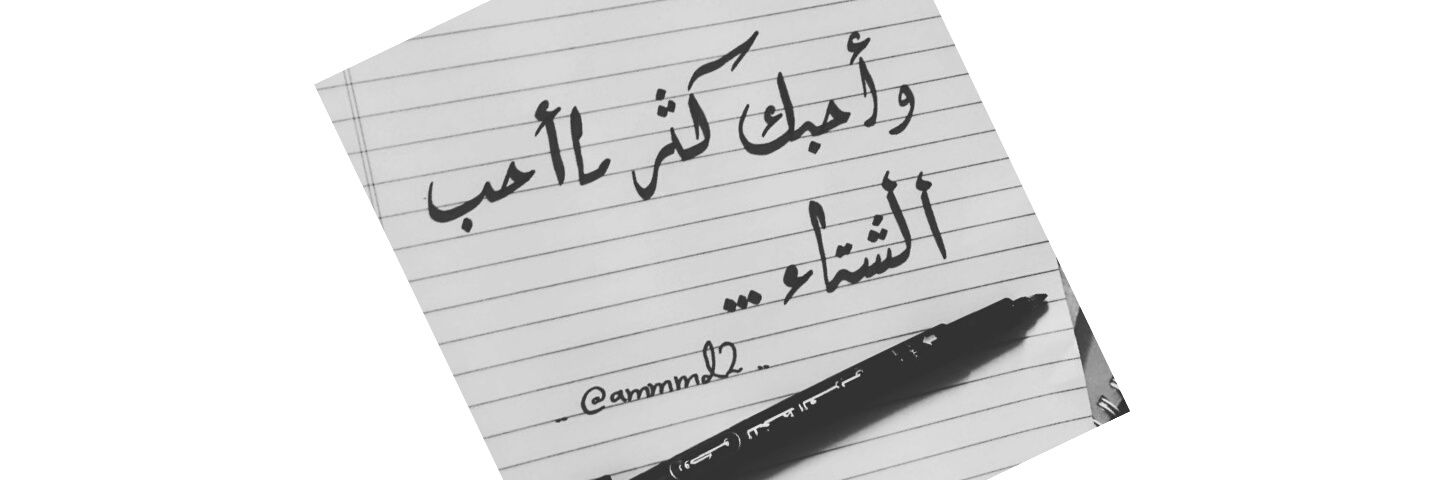 وأحبك كثر ماأحب
ألشتاء ...
.. @ammmd2 ..